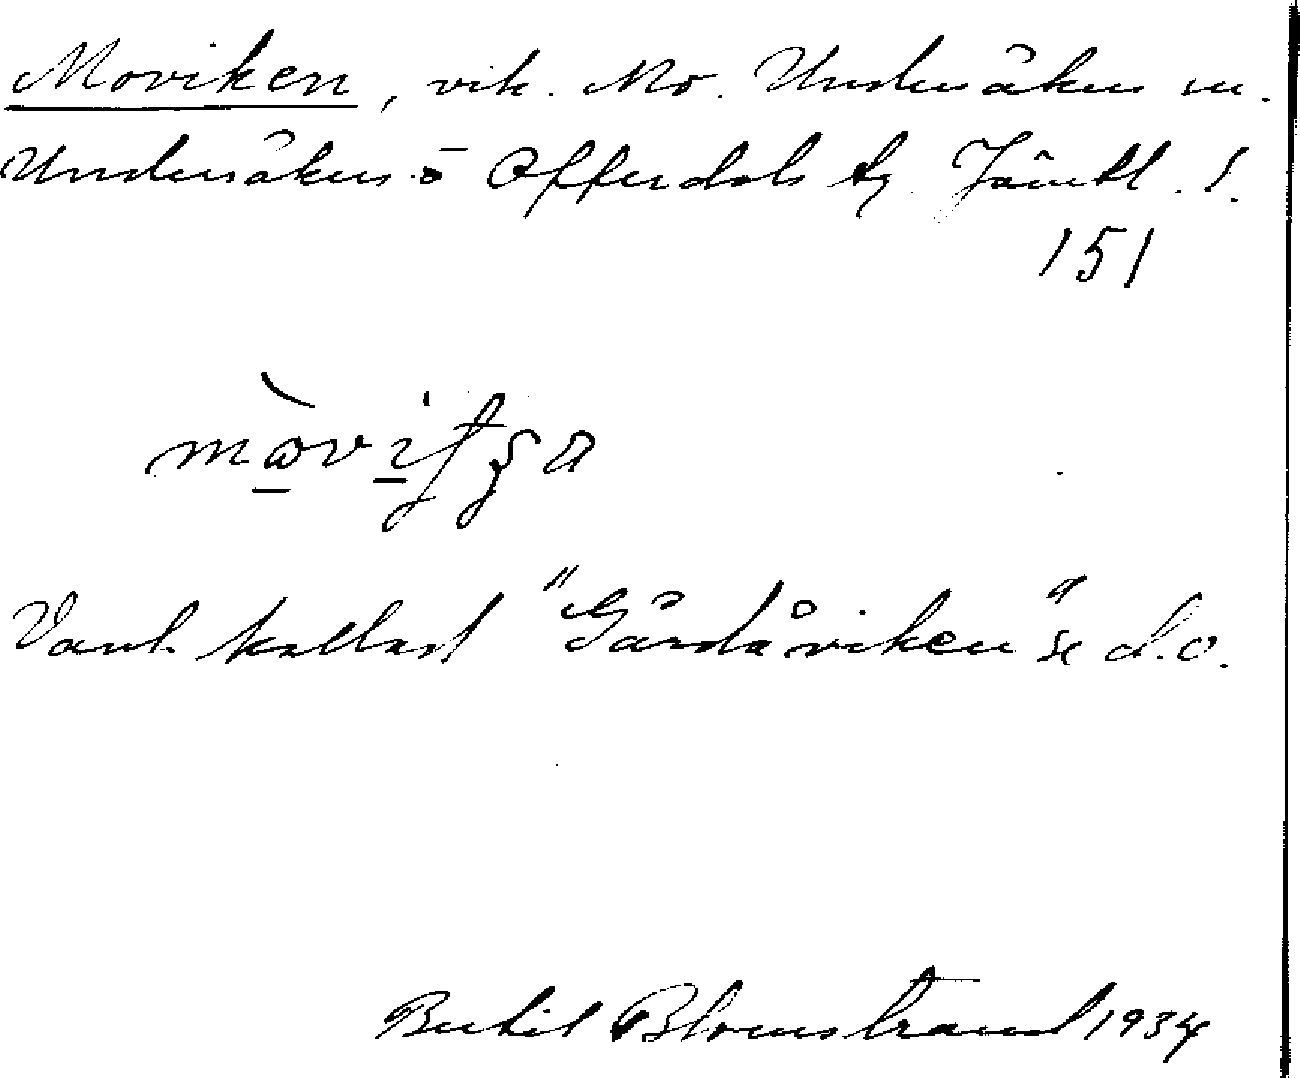 Moviken, vik. Mo. Undersåkers sn.
Undersåkers o Offerdals tg. Jämtl. l.
151
Vanl. kallad "Gärdåviken" se d.o.
Bertil Blomstrand 1934